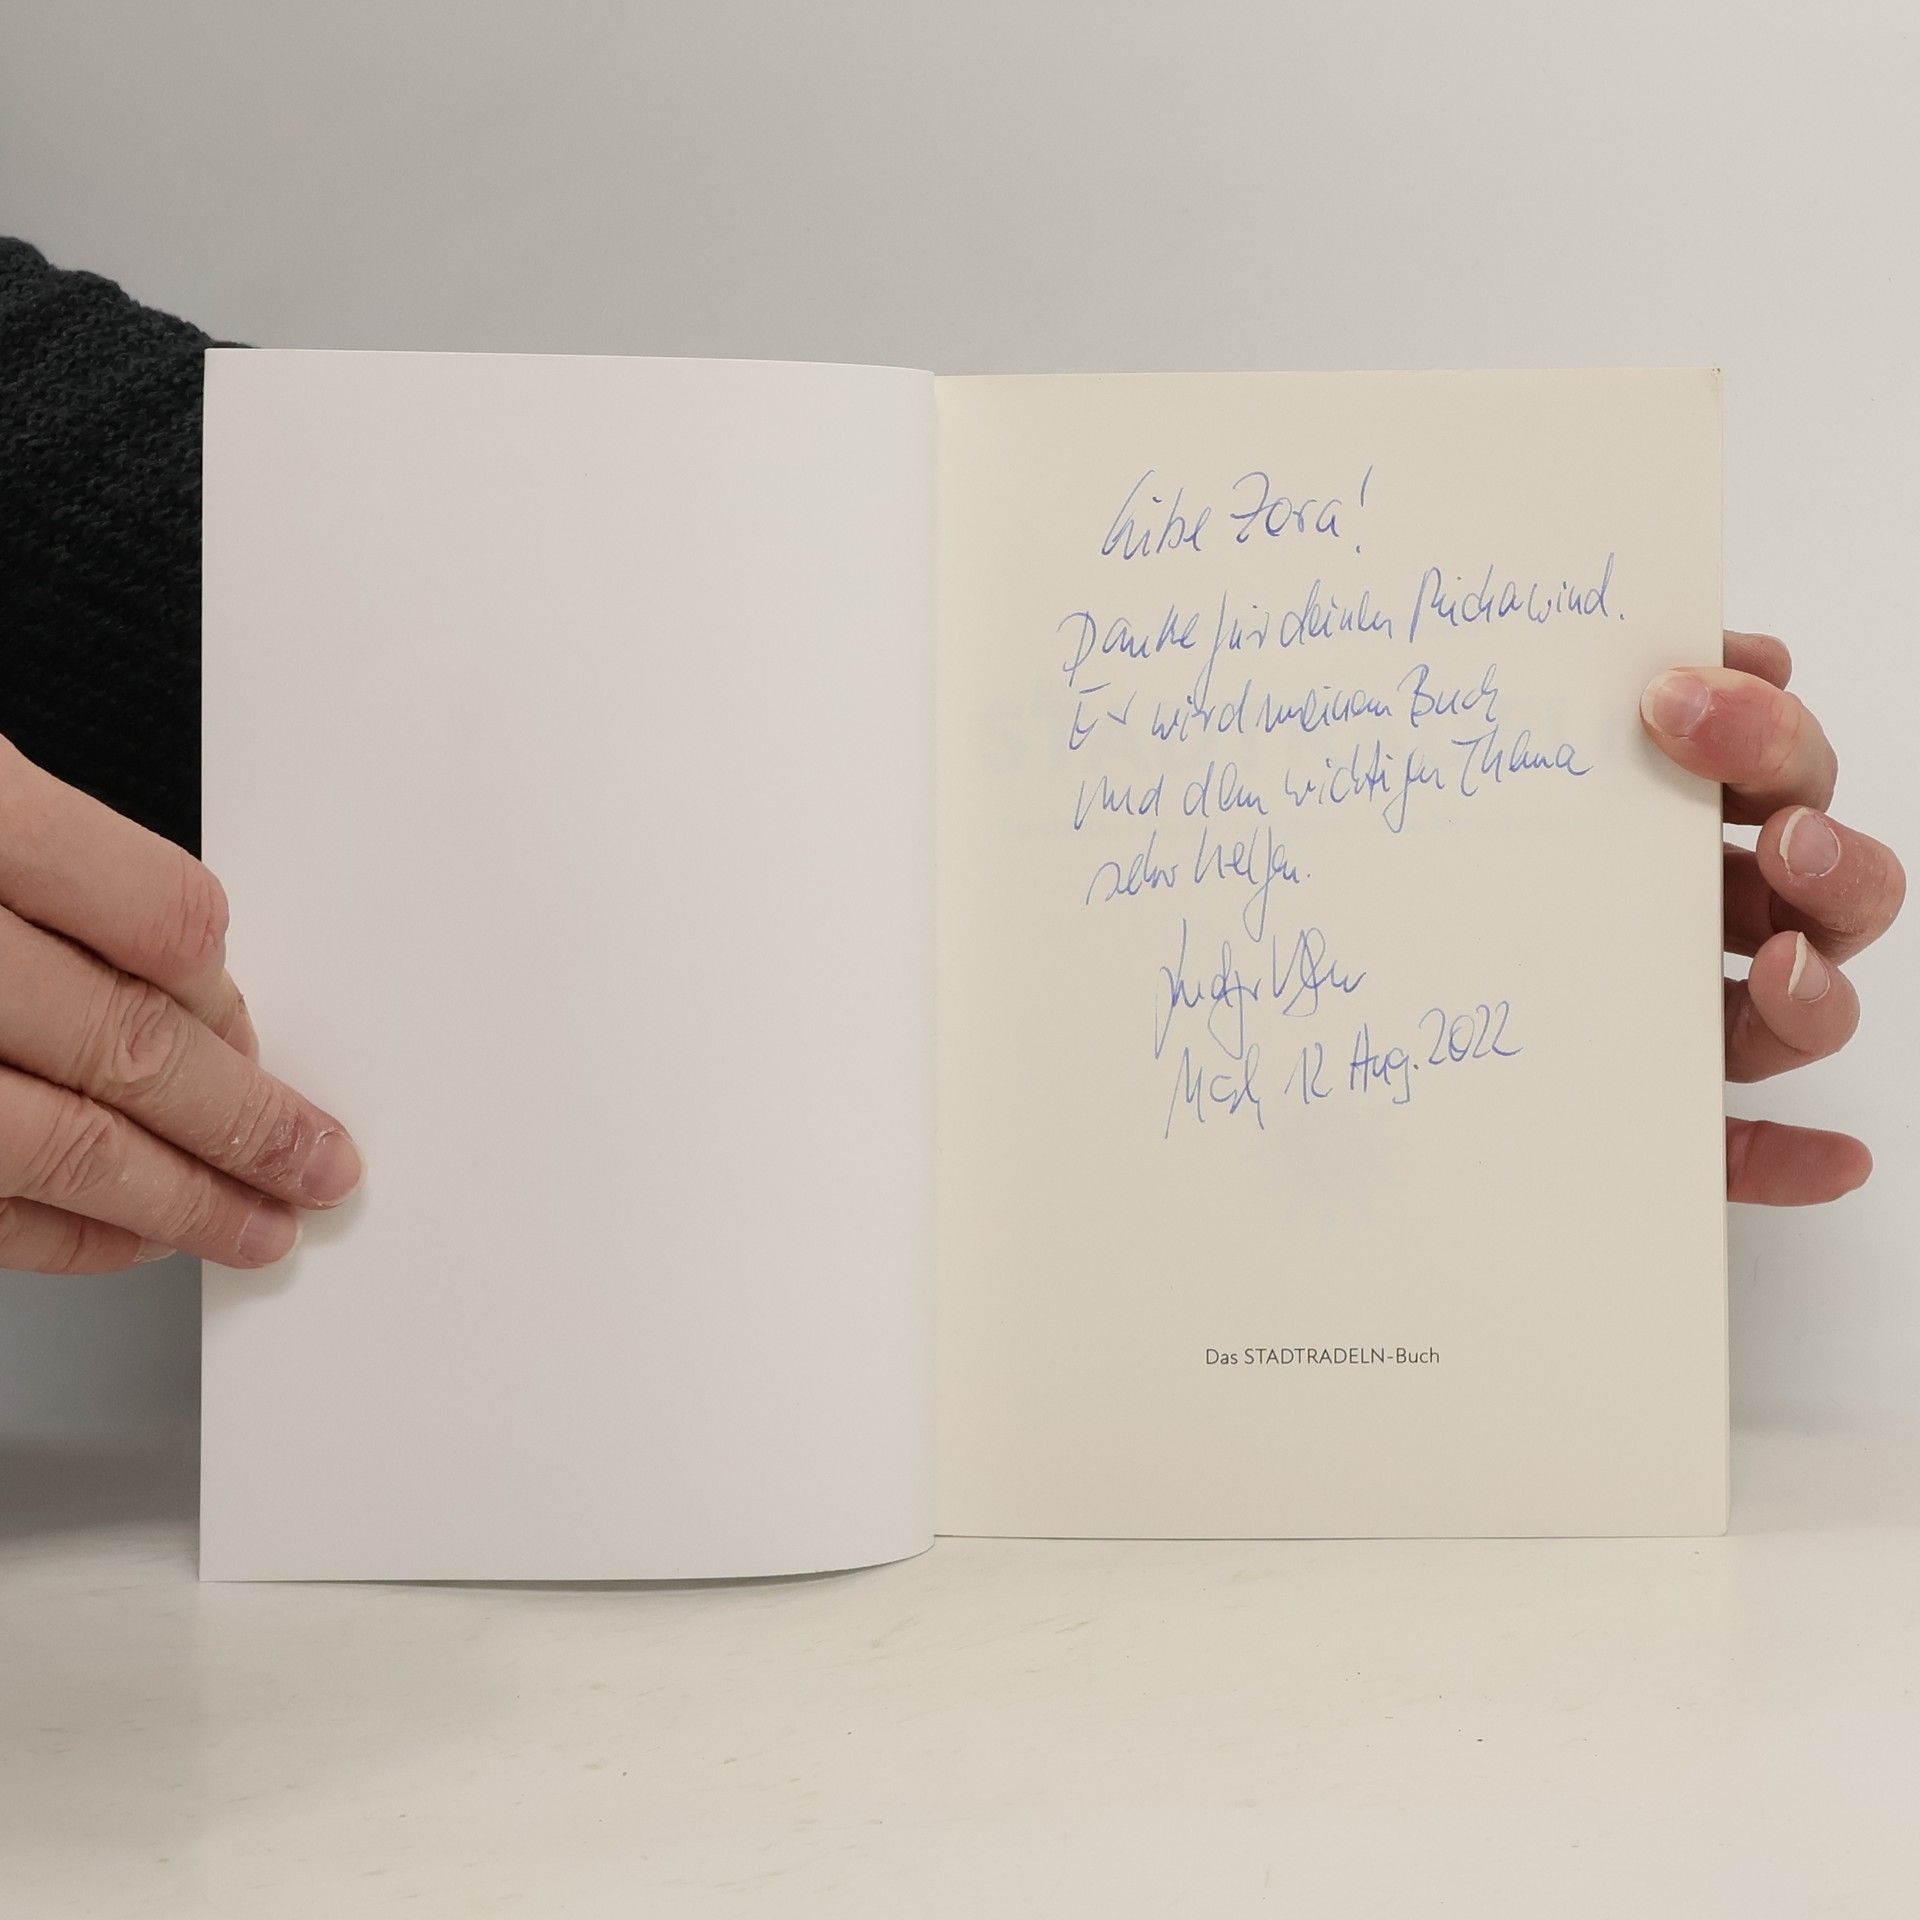 Liebe Zora!
Danke für deinen Rückenwind.
Er wird meinem Buch
und dem wichtigen Thema
sehr helfen.
12 Aug. 2022
Das STADTRADELN-Buch